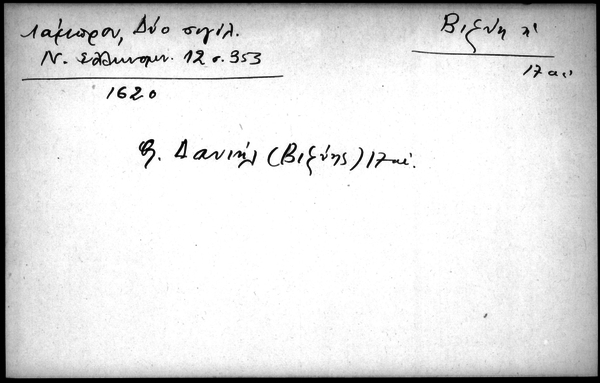 Λάμπρου, Δύο σιγίλ.
Ν. Ἑλληνομν. 12 σ. 353
1620
Βιζύη
17 αἰ.
Δανιήλ (Βιζύης) 17 αἰ.